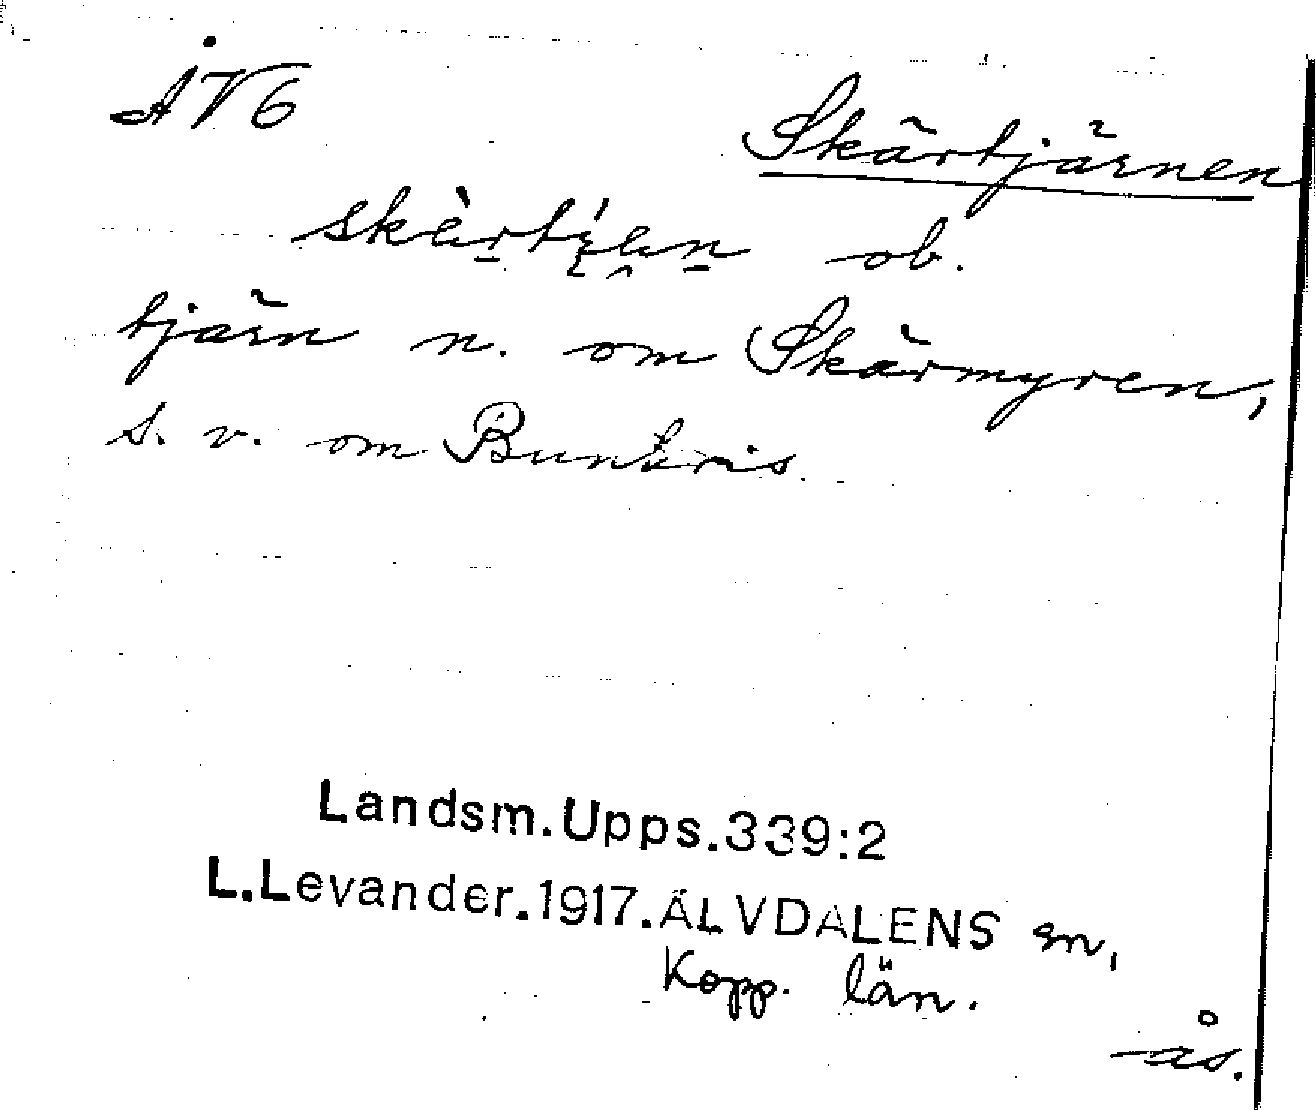 ÅV6
Skärtjärnen
ob.
tjärn n. om Skärmyren,
s. v. om Bunkris.
Landsm.Upps.339:2
L.Levander.1917.ÄLVDALENS sn,
Kopp. län.
ås.